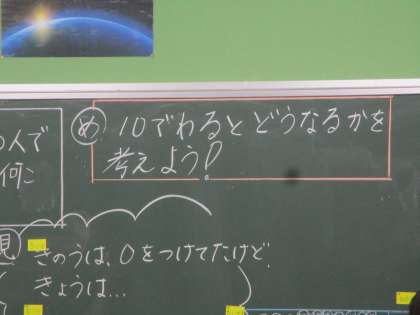 め 10でわるとどうなるかを
考えよう!
人で
何こ
見 きのうは、0をつけてたけど、
きょうは…